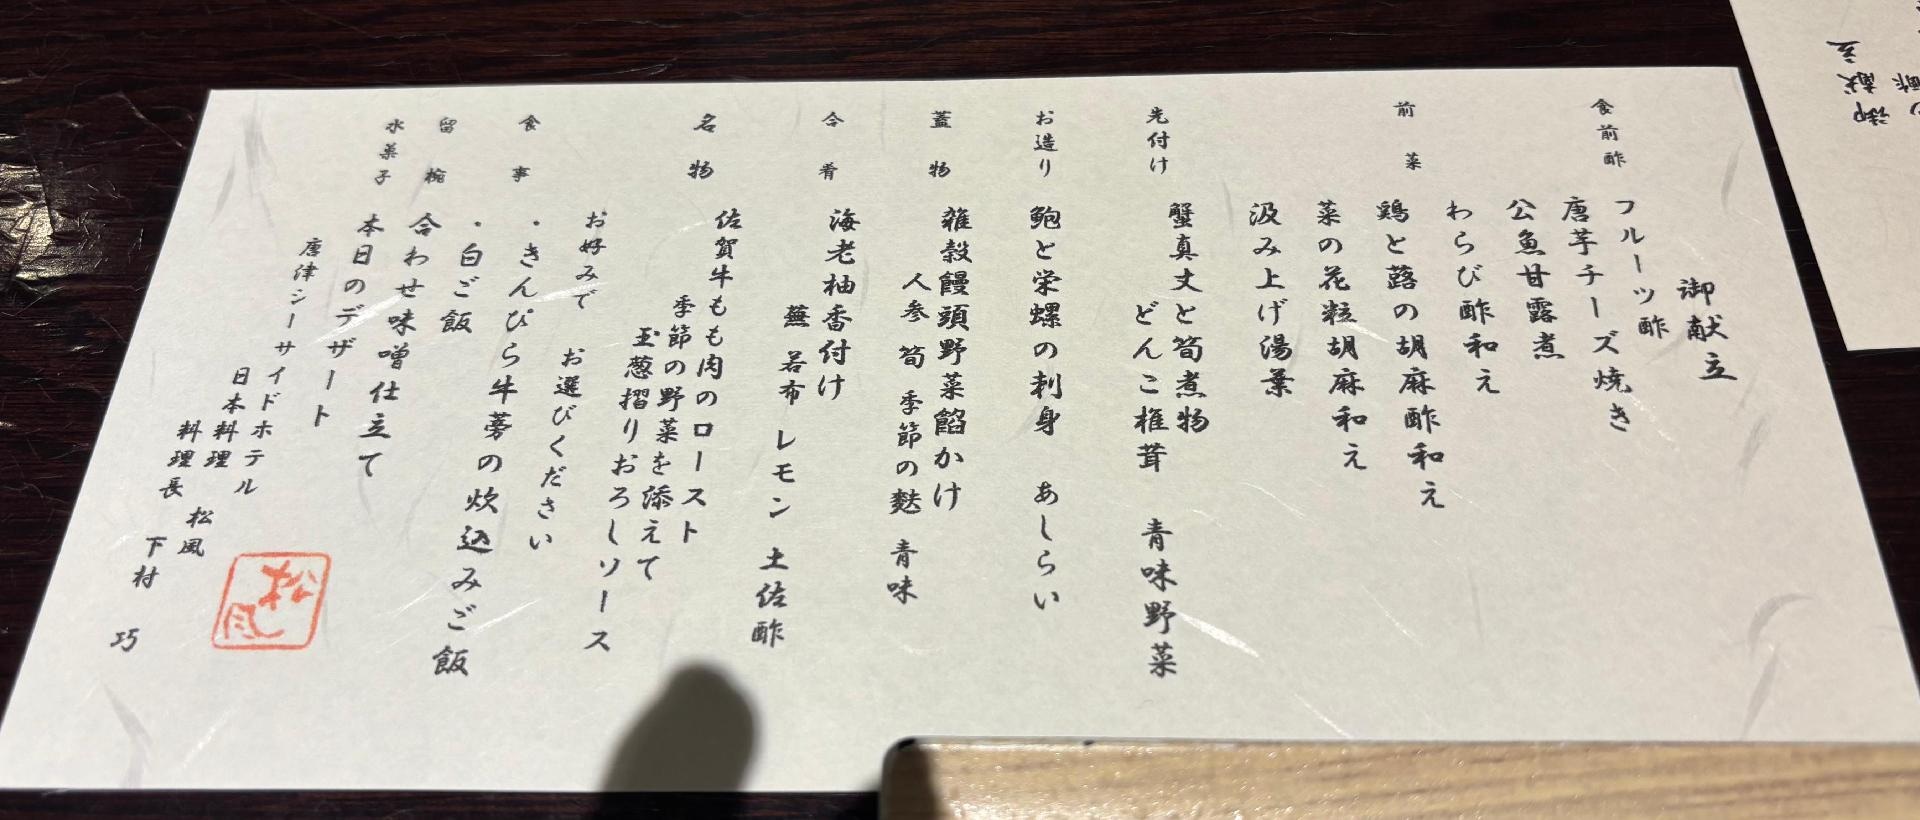 御献立
食前酢 フルーツ酢
前菜 唐芋チーズ焼き
公魚甘露煮
わらび酢和え
鶏と蕗の胡麻酢和え
菜の花粒胡麻和え
汲み上げ湯葉
先付け 蟹真丈と筍煮物
どんこ椎茸 青味野菜
お造り 鮑と栄螺の刺身 あしらい
蓋物 雑穀饅頭野菜餡かけ
人参 筍 季節の麩 青味
合肴 海老柚香付け
蕪 若布 レモン 土佐酢
名物 佐賀牛もも肉のロースト
季節の野菜を添えて
玉葱摺りおろしソース
お好みで お選びください
食事 ・きんぴら牛蒡の炊込みご飯
・白ご飯
留椀 合わせ味噌仕立て
水菓子 本日のデザート
唐津シーサイドホテル
日本料理 松風
料理長 下村 巧
松風
御献立